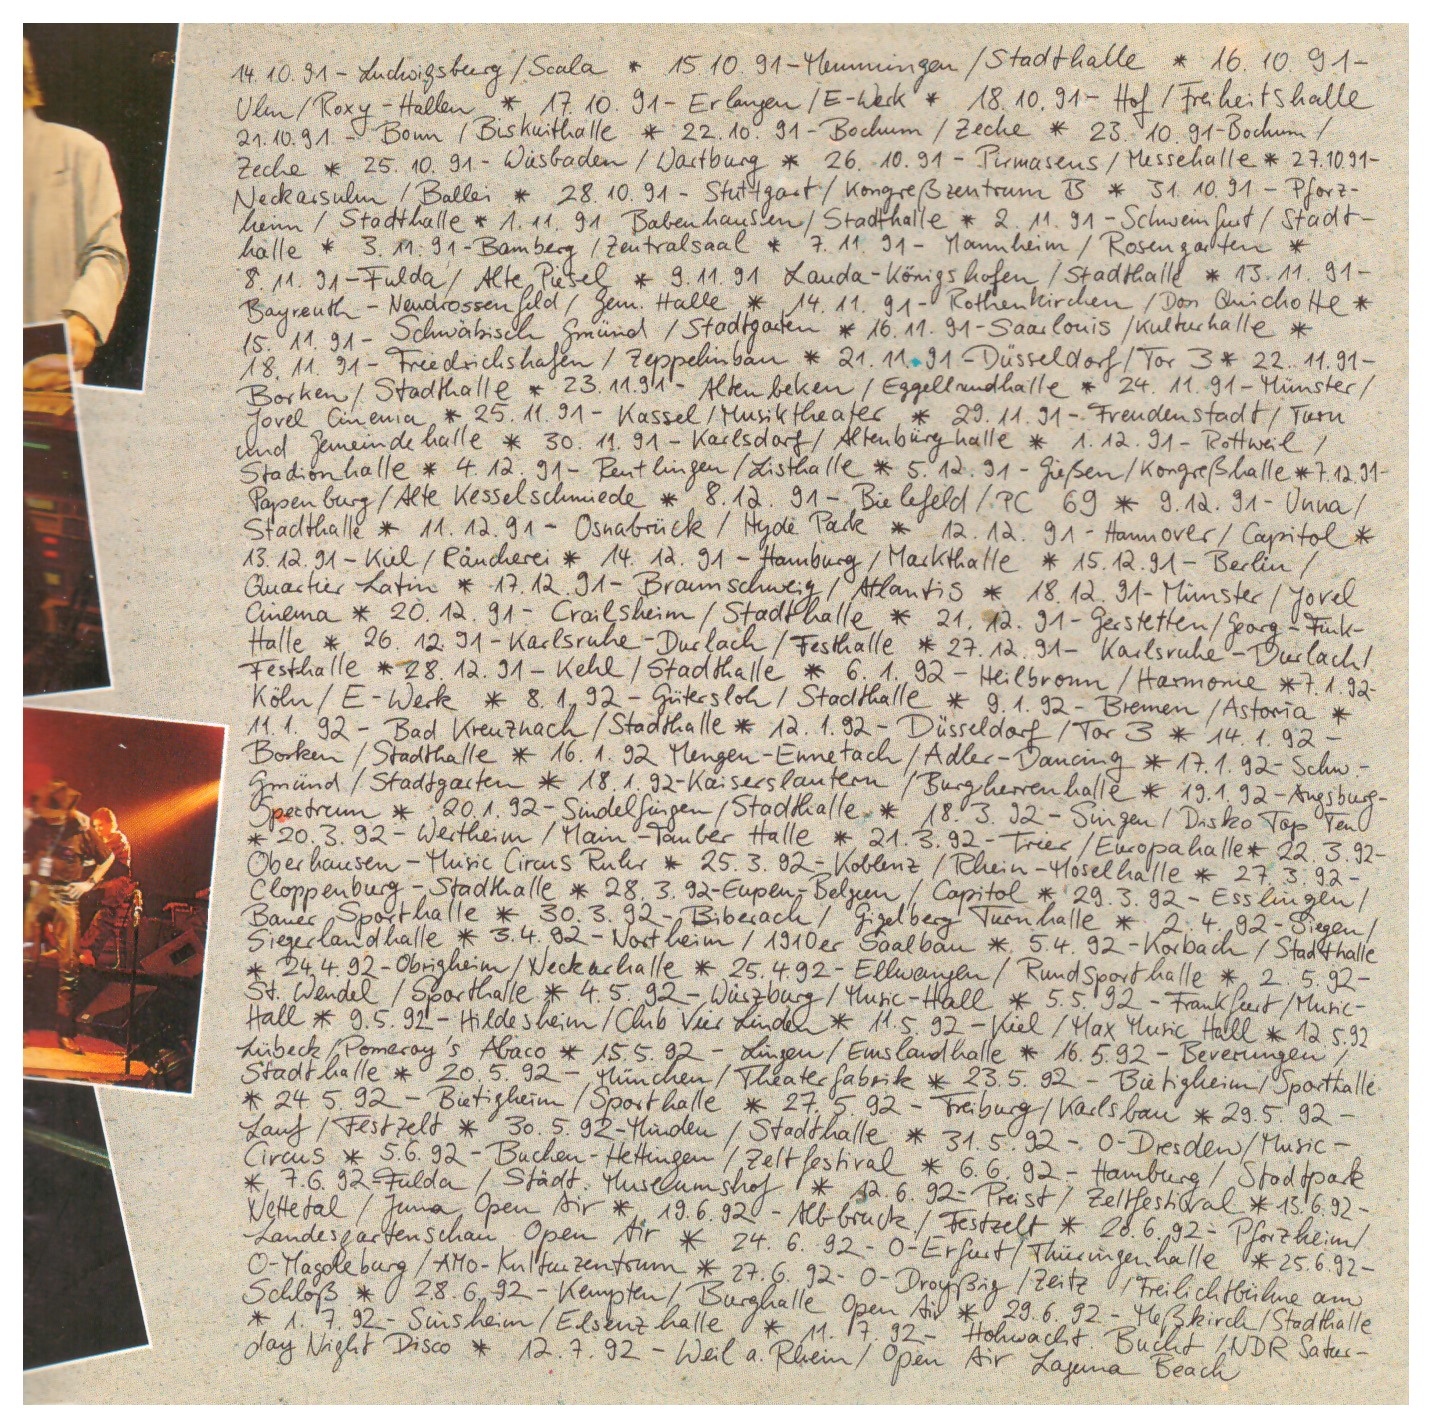 14.10.91 - Ludwigsburg / Scala * 15.10.91 - Memmingen / Stadthalle * 16.10.91 -
Ulm / Roxy - Hallen * 17.10.91 - Erlangen / E-Werk * 18.10.91 - Hof / Freiheitshalle
21.10.91 - Bonn / Biskuithalle * 22.10.91 - Bochum / Zeche * 23.10.91 - Bochum /
Zeche * 25.10.91 - Wiesbaden / Wartburg * 26.10.91 - Pirmasens / Messehalle * 27.10.91 -
Neckarsulm / Ballei * 28.10.91 - Stuttgart / Kongreßzentrum B * 31.10.91 - Pforz-
heim / Stadthalle * 1.11.91 Babenhausen / Stadthalle * 2.11.91 - Schweinfurt / Stadt-
halle * 3.11.91 - Bamberg / Zentralsaal * 7.11.91 - Mannheim / Rosengarten *
8.11.91 - Fulda / Alte Piesel * 9.11.91 Lauda-Königshofen / Stadthalle * 13.11.91 -
Bayreuth - Neudrossenfeld / Gem. Halle * 14.11.91 - Rothenkirchen / Don Quichotte *
15.11.91 - Schwäbisch Gmünd / Stadtgarten * 16.11.91 - Saarlouis / Kulturhalle *
18.11.91 - Friedrichshafen / Zeppelinbau * 21.11.91 - Düsseldorf / Tor 3 * 22.11.91 -
Borken / Stadthalle * 23.11.91 - Altenbeken / Eggelandhalle * 24.11.91 - Münster /
Jovel Cinema * 25.11.91 - Kassel / Musiktheater * 29.11.91 - Freudenstadt / Turn
und Gemeindehalle * 30.11.91 - Karlsdorf / Altenbürghalle * 1.12.91 - Rottweil /
Stadionhalle * 4.12.91 - Reutlingen / Listhalle * 5.12.91 - Gießen / Kongreßhalle * 7.12.91 -
Papenburg / Alte Kesselschmiede * 8.12.91 - Bielefeld / PC 69 * 9.12.91 - Unna /
Stadthalle * 11.12.91 - Osnabrück / Hyde Park * 12.12.91 - Hannover / Capitol *
13.12.91 - Kiel / Räucherei * 14.12.91 - Hamburg / Markthalle * 15.12.91 - Berlin /
Quartier Latin * 17.12.91 - Braunschweig / Atlantis * 18.12.91 - Münster / Jovel
Cinema * 20.12.91 - Crailsheim / Stadthalle * 21.12.91 - Gerstetten / Georg-Fink-
Halle * 26.12.91 - Karlsruhe-Durlach / Festhalle * 27.12.91 - Karlsruhe - Durlach /
Festhalle * 28.12.91 - Kehl / Stadthalle * 6.1.92 - Heilbronn / Harmonie * 7.1.92 -
Köln / E-Werk * 8.1.92 - Gütersloh / Stadthalle * 9.1.92 - Bremen / Astoria *
11.1.92 - Bad Kreuznach / Stadthalle * 12.1.92 - Düsseldorf / Tor 3 * 14.1.92 -
Borken / Stadthalle * 16.1.92 Mengen-Ennetach / Adler-Dancing * 17.1.92 - Schw.-
Gmünd / Stadtgarten * 18.1.92 - Kaiserslautern / Burgherrenhalle * 19.1.92 - Augsburg -
Spectrum * 20.1.92 - Sindelfingen / Stadthalle * 18.3.92 - Singen / Disko Top Ten
* 20.3.92 - Wertheim / Main-Tauber Halle * 21.3.92 - Trier / Europahalle * 22.3.92 -
Oberhausen - Music Circus Ruhr * 25.3.92 - Koblenz / Rhein-Moselhalle * 27.3.92 -
Cloppenburg - Stadthalle * 28.3.92 - Eupen-Belgien / Capitol * 29.3.92 - Esslingen /
Bauer Sporthalle * 30.3.92 - Biberach Gigelberg Turnhalle * 2.4.92 - Siegen /
Siegerlandhalle * 3.4.92 - Northeim / 1910er Saalbau * 5.4.92 - Korbach / Stadthalle
* 24.4.92 - Obrigheim / Neckarhalle * 25.4.92 - Ellwangen / Rundsporthalle * 2.5.92 -
St. Wendel / Sporthalle * 4.5.92 - Würzburg / Music-Hall * 5.5.92 - Frankfurt / Music-
Hall * 9.5.92 - Hildesheim / Club Vier Linden * 11.5.92 - Kiel / Max Music Hall * 12.5.92
Lübeck / Pomeroy's Abaco * 15.5.92 - Lingen / Emslandhalle * 16.5.92 - Beverungen /
Stadthalle * 20.5.92 - München / Theaterfabrik * 23.5.92 - Bietigheim / Sporthalle
* 24.5.92 - Bietigheim / Sporthalle * 27.5.92 - Freiburg / Karlsbau * 29.5.92 -
Lauf / Festzelt * 30.5.92 - Minden / Stadthalle * 31.5.92 - O-Dresden / Music-
Circus * 5.6.92 - Buchen-Hettingen / Zeltfestival * 6.6.92 - Hamburg / Stadtpark
* 7.6.92 - Fulda / Städt. Museumshof * 12.6.92 - Preist / Zeltfestival * 13.6.92 -
Nettetal / Juma Open Air * 19.6.92 - Albbruck / Festzelt * 20.6.92 - Pforzheim /
Landesgartenschau Open Air * 24.6.92 - O-Erfurt / Thüringenhalle * 25.6.92 -
O-Magdeburg / AMO-Kulturzentrum * 27.6.92 - O-Droyßig / Zeitz / Freilichtbühne am
Schloß * 28.6.92 - Kempten / Burghalle Open Air * 29.6.92 - Meßkirch / Stadthalle
* 1.7.92 - Sinsheim / Elsenzhalle * 11.7.92 - Hohwacht. Bucht / NDR Satur-
day Night Disco * 12.7.92 - Weil a. Rhein / Open Air Laguna Beach